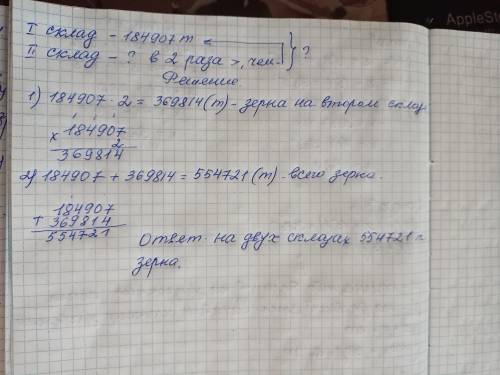 AppleSto
I склад - 184907 т
II склад - ? в 2 раза >, чем } ?
Решение.
1) 184907 · 2 = 369814 (т) - зерна на втором склад
х 184907
2
369814
2) 184907 + 369814 = 554721 (т) - всего зерна.
+ 184907
369814
554721
Ответ: на двух складах 554721 т
зерна.